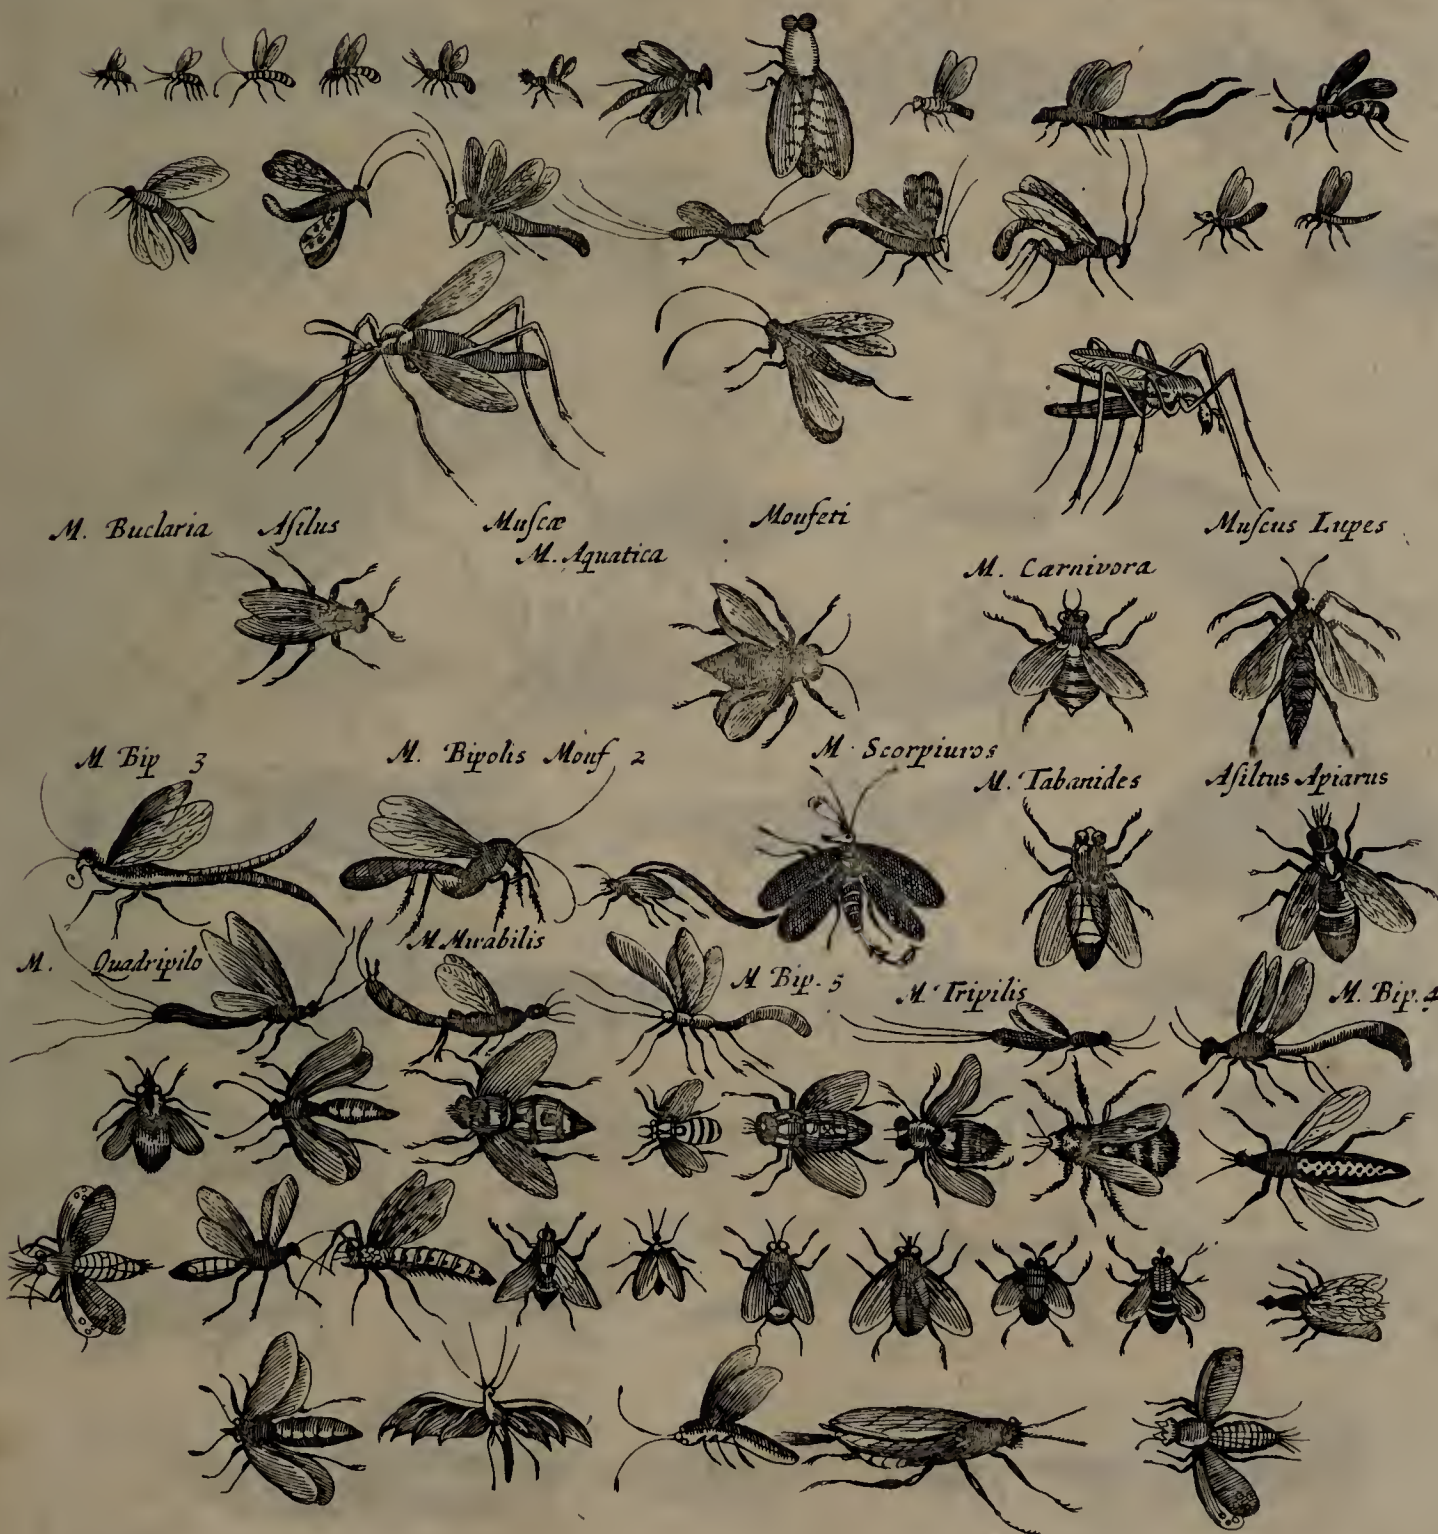 M. Buclaria Asilus Muscæ Moufeti Muscus Lupes
M. Aquatica M. Carnivora
M Bip 3 M. Bipolis Mouf 2 M. Scorpiuros
M. Tabanides Asiltus Apiarus
M. Quadripilo M Mirabilis M Bip. 5 M. Tripilis M. Bip. 4